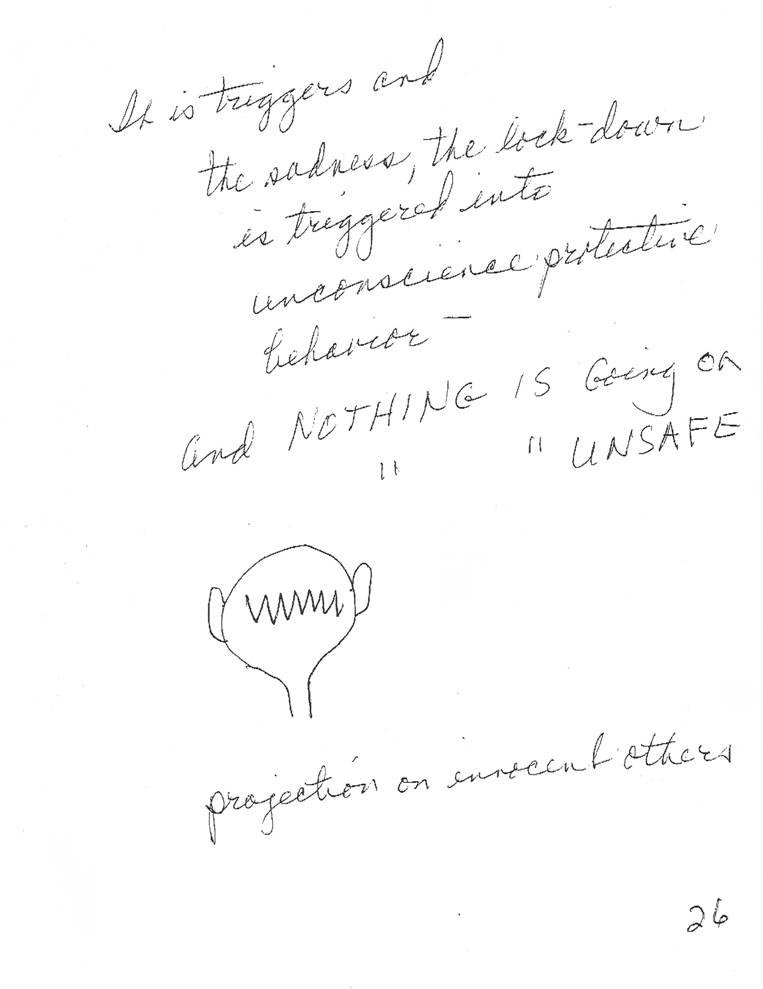 It is triggers and
the sadness, the lock-down
is triggered into
unconscience protective
behavior –
and NOTHING IS Going on
" " UNSAFE
projection on innocent others
26